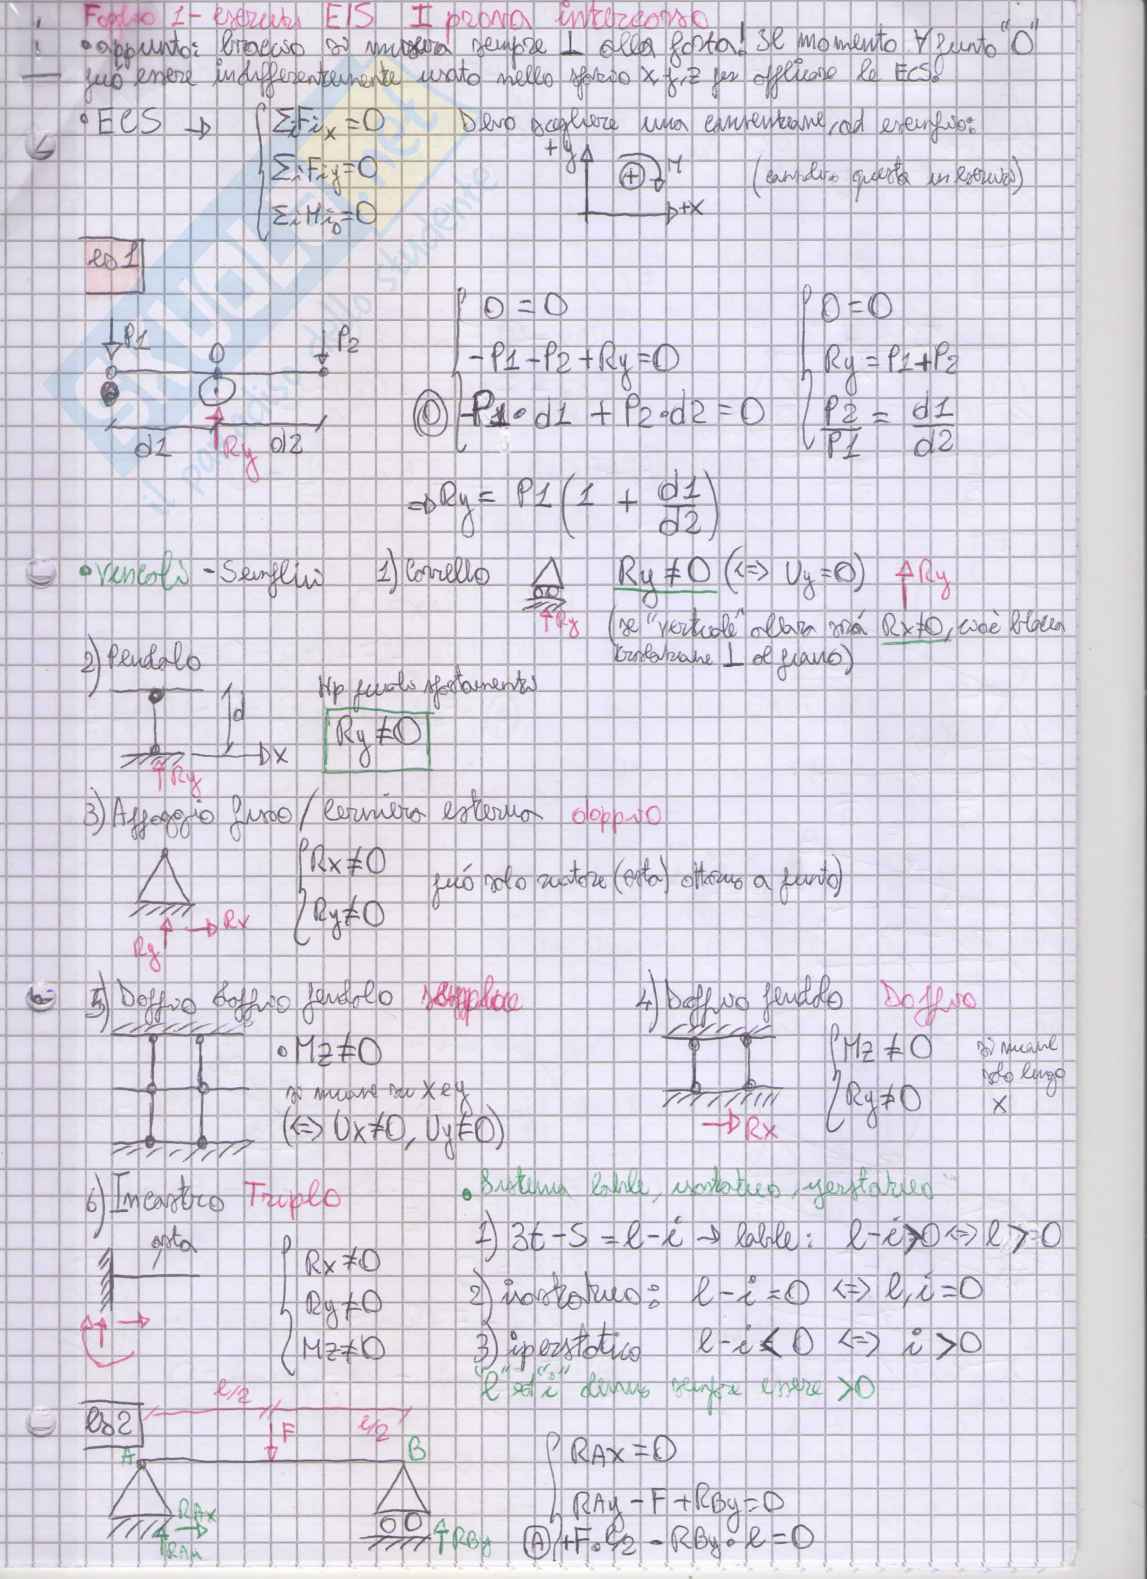 Foglio 1 - esercizi EIS I prova intercorso
• appunto: braccio si misura sempre ⊥ alla forza! Il momento ∀ punto "O"
può essere indifferentemente usato nello spazio x, y, z per applicare le ECS.
• ECS → { ΣiFix=0 Devo scegliere una convenzione, ad esempio:
ΣiFiy=0 +y + M (cambio questa in esercizi)
ΣiMio=0 +x
es 1
P1 O P2
d1 Ry d2
{ 0 = 0
-P1-P2+Ry=0
(O) -P1·d1 + P2·d2 = 0
{ 0=0
Ry = P1+P2
P2/P1 = d1/d2
⇒ Ry = P1(1 + d1/d2)
• Vincoli - Semplici 1) Carrello Ry Ry≠0 (<=> Uy=0) Ry
(se "verticale" allora sarà Rx≠0, cioè blocca
traslazione ⊥ al piano)
2) Pendolo
d x Ry
Hp piccoli spostamenti
Ry≠0
3) Appoggio fisso / Cerniera esterna doppio
Ry Rx
{ Rx≠0
Ry≠0
può solo ruotare (asta) attorno a punto)
5) Doppio doppio pendolo semplice
• Mz≠0
si muove su x e y
(<=> Ux≠0, Uy≠0)
4) Doppio pendolo Doppio
Rx
{ Mz≠0
Ry≠0
si muove
solo lungo
x
6) Incastro Triplo
asta
{ Rx≠0
Ry≠0
Mz≠0
• Sistema labile, isostatico, iperstatico
1) 3t-S = l-i → labile: l-i>0 <=> l>0
2) isostatico: l-i=0 <=> l,i=0
3) iperstatico l-i<0 <=> i>0
"l" ed "i" devono sempre essere >0
es2
l/2 F l/2
A B
RAx
RAy
RBy
{ RAx=0
RAy-F+RBy=0
(A) +F·l/2 - RBy·l=0
SKUOLA.net
il paradiso dello studente